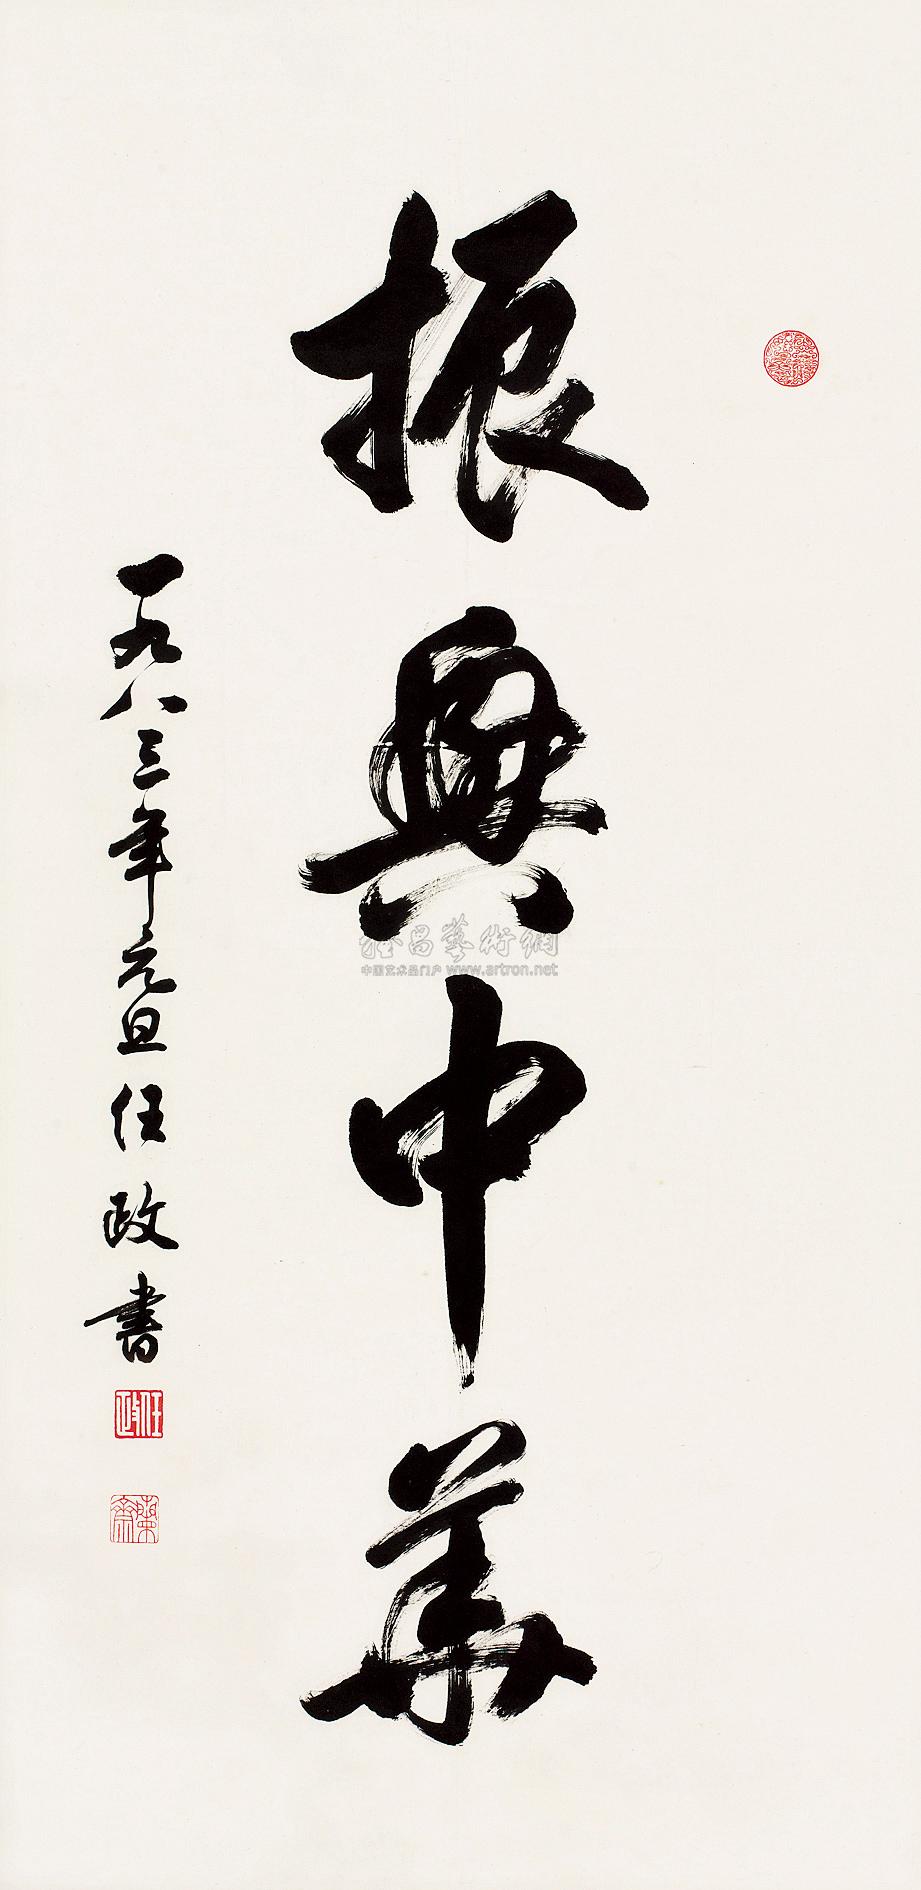 振興中華
一九八三年元旦任政書
任政
雅昌藝術網
中国艺术品门户 www.artron.net